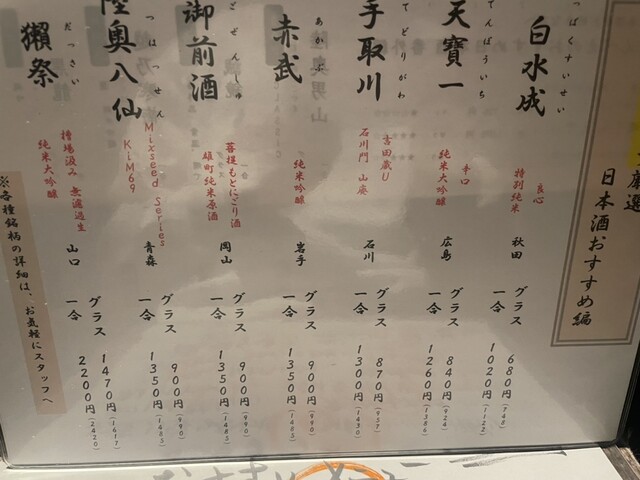 厳選
日本酒おすすめ編
っぱくすいせい
白水成
良心
特別純米
秋田
グラス 680円(748)
一合 1020円(1122)
てんぽういち
天寶一
辛口
純米大吟醸
広島
グラス 840円(924)
一合 1260円(1386)
てどりがわ
手取川
吉田蔵U
石川門 山廃
石川
グラス 870円(957)
一合 1300円(1430)
あかぶ
赤武
純米吟醸
岩手
グラス 900円(990)
一合 1350円(1485)
ごぜんしゅ
御前酒
菩提もとにごり酒
雄町純米原酒
岡山
グラス 900円(990)
一合 1350円(1485)
つはっせん
陸奥八仙
Mixseed Series
KiM69
青森
グラス 900円(990)
一合 1350円(1485)
だっさい
獺祭
槽場汲み 無濾過生
純米大吟醸
山口
グラス 1470円(1617)
一合 2200円(2420)
※各種銘柄の詳細は、お気軽にスタッフへ